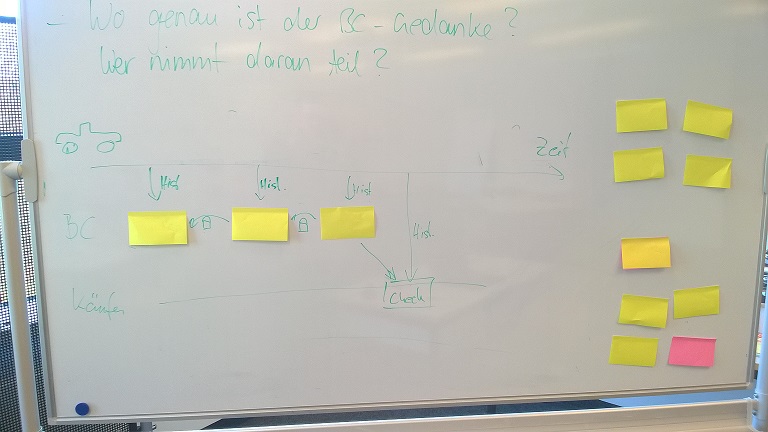 - Wo genau ist der BC-Gedanke?
Wer nimmt daran teil?
Zeit
Hist. Hist. Hist
BC
Hist.
Check
Käufer